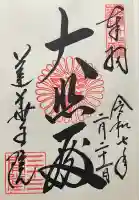 奉拝
令和七年
二月二十日
大悲殿
蓮華王院